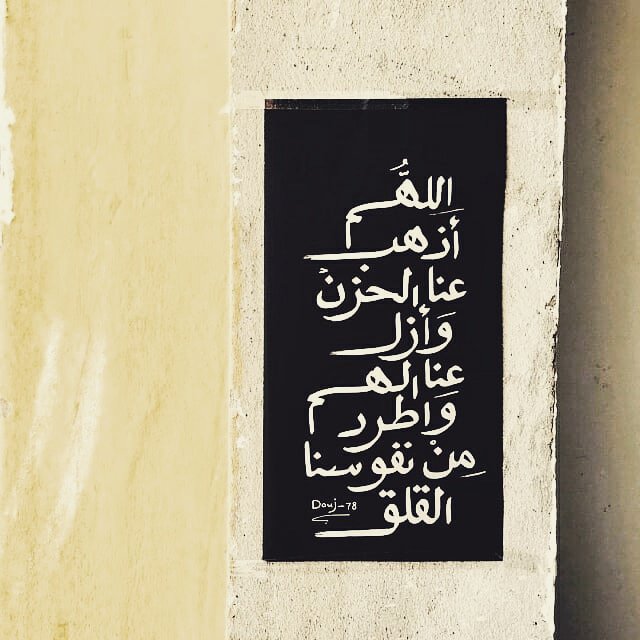 اللهُّم
أذهب
عنا الحزنْ
وَأزل
عنا الهم
وَاطرد
مِنْ نفوسنا
القلق
Douj-78